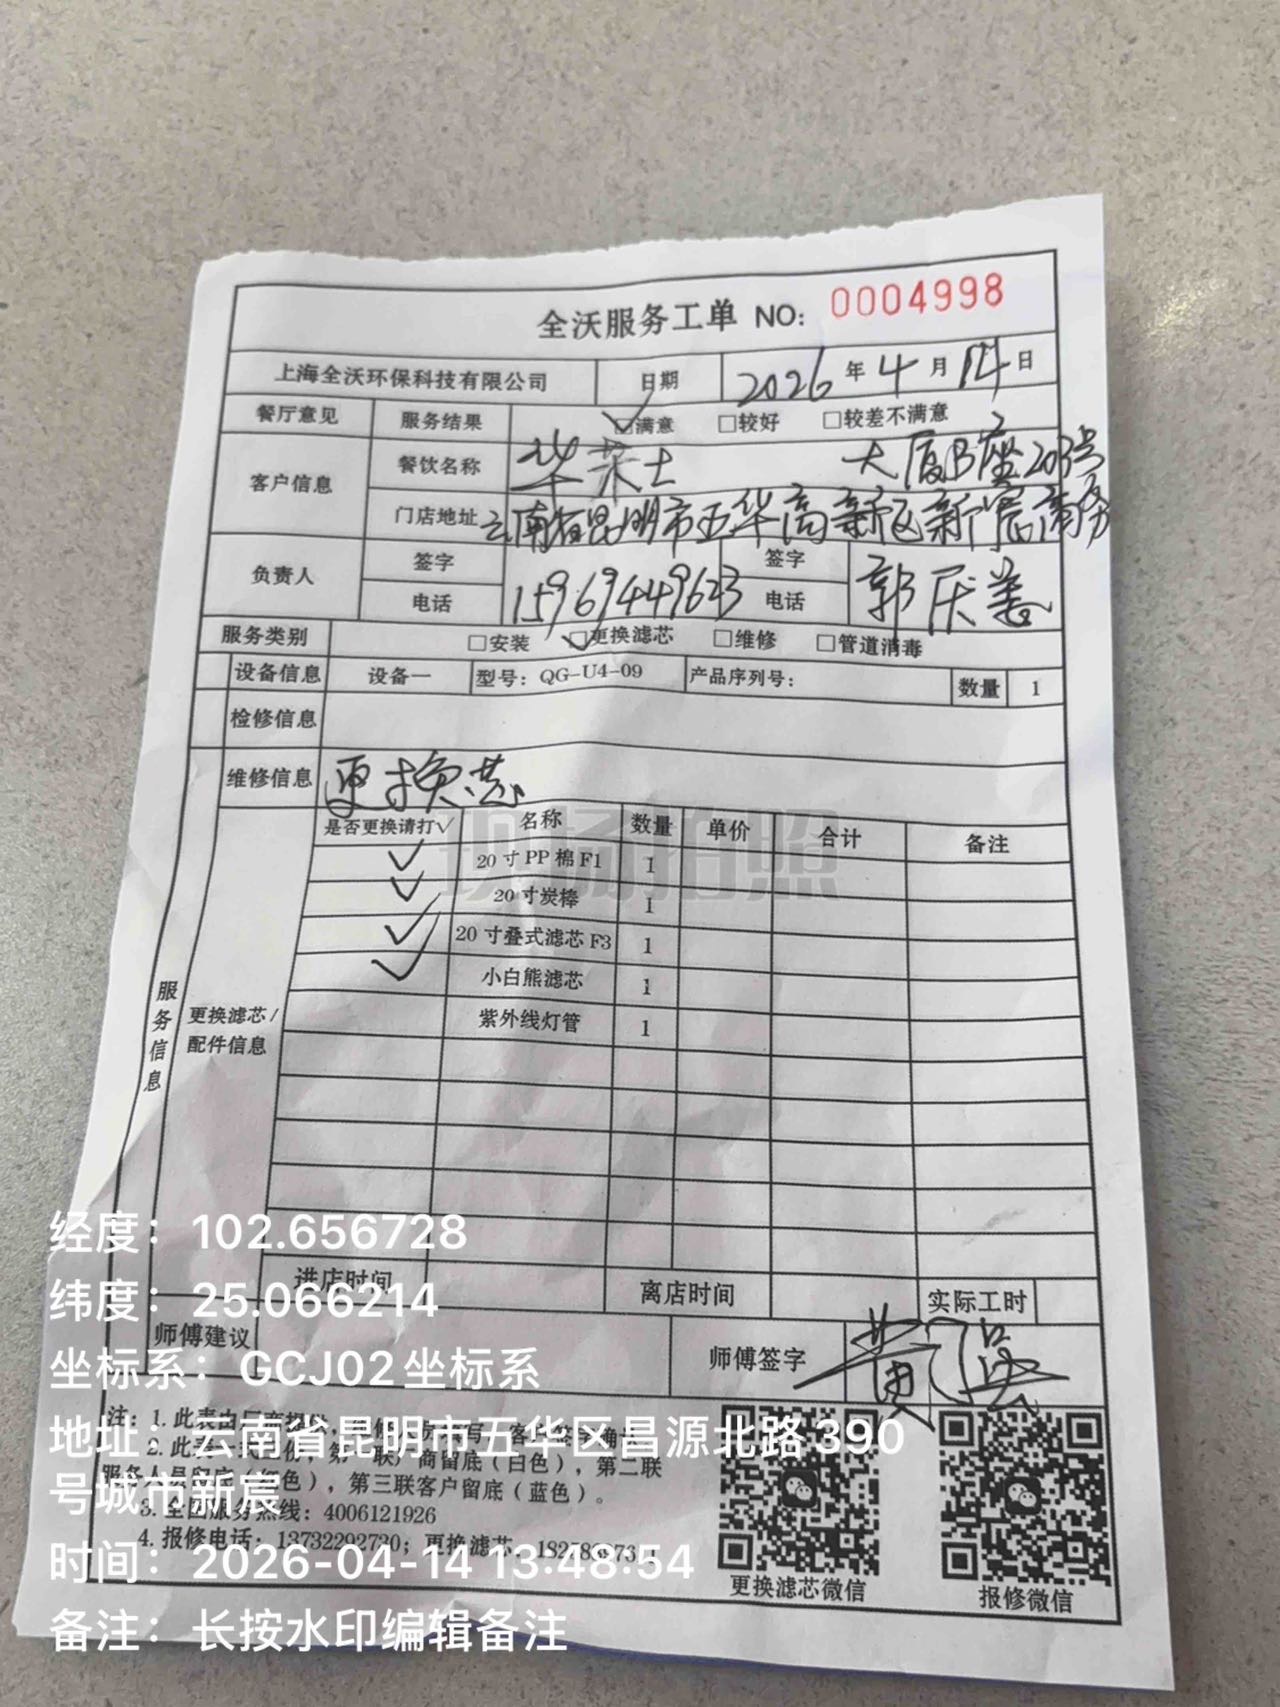 全沃服务工单 NO: 0004998
上海全沃环保科技有限公司 日期 2026年4月14日
餐厅意见 服务结果 ☑满意 □较好 □较差不满意
客户信息 餐饮名称 华莱士 大厦B座203号
门店地址 云南省昆明市五华高新区新宸商务
负责人 签字 签字
电话 15969449623 电话 郭庆
服务类别 □安装 ☑更换滤芯 □维修 □管道消毒
设备信息 设备一 型号：QG-U4-09 产品序列号： 数量 1
检修信息
维修信息 更换芯
服务信息
更换滤芯/
配件信息
是否更换请打√ 名称 数量 单价 合计 备注
✓ 20寸PP棉F1 1
✓ 20寸炭棒 1
✓ 20寸叠式滤芯F3 1
✓ 小白熊滤芯 1
紫外线灯管 1
现场拍照
进店时间 离店时间 实际工时
师傅建议 师傅签字 黄
注：1.此表由
2.此表一式 份，第一联厂商留底（白色），第二联
服务人员留底（红色），第三联客户留底（蓝色）。
3.全国服务热线：4006121926
4.报修电话：13732292730；更换滤芯：
更换滤芯微信 报修微信
经度：102.656728
纬度：25.066214
坐标系：GCJ02坐标系
地址：云南省昆明市五华区昌源北路390
号城市新宸
时间：2026-04-14 13:48:54
备注：长按水印编辑备注